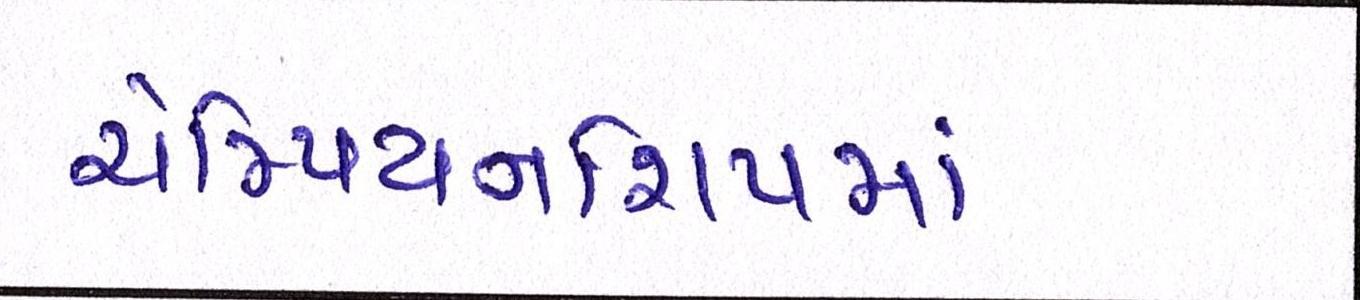 ચેમ્પિયનશિપમાં